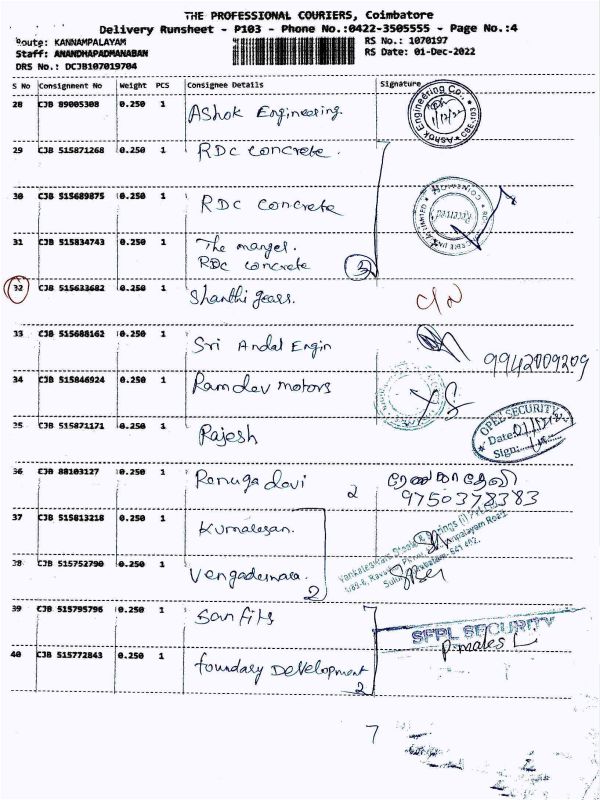 THE PROFESSIONAL COURIERS, Coimbatore
Delivery Runsheet - P103 - Phone No.:0422-3505555 - Page No.:4
Route: KANNAMPALAYAM RS No.: 1070197
Staff: ANANDHAPADMANABAN RS Date: 01-Dec-2022
DRS No.: DCJB107019704
S No Consignment No Weight PCS Consignee Details Signature
28 CJB 89005308 0.250 1 Ashok Engineering.
Ashok Engineering Co.,
29 CJB 515871268 0.250 1 RDC concrete.
30 CJB 515689875 0.250 1 RDC concrete
Received
31 CJB 515834743 0.250 1 The manger.
RDC concrete 3
32 CJB 515633682 0.250 1 Shanthi gears.
33 CJB 515688162 0.250 1 Sri Andal Engin 9942009209
34 CJB 515846924 0.250 1 Ramdev motors
35 CJB 515871171 0.250 1 Rajesh
OPEL SECURITY
Date:
Sign:
36 CJB 88103127 0.250 1 Renuga devi 2
9750378383
37 CJB 515813218 0.250 1 Kumalesan.
38 CJB 515752790 0.250 1 2
39 CJB 515795796 0.250 1 San fits
SFPL SECURITY
40 CJB 515772843 0.250 1 foundary Development
2
7